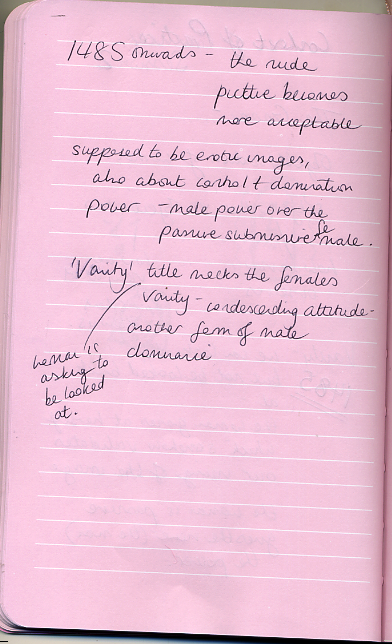 1485 onwards - the nude
picture becomes
more acceptable
supposed to be erotic images,
also about control + domination
power - male power over the
passive submissive female.
'Vanity' title mocks the females
vanity - condescending attitude -
another form of male
dominance
woman is
asking to
be looked
at.